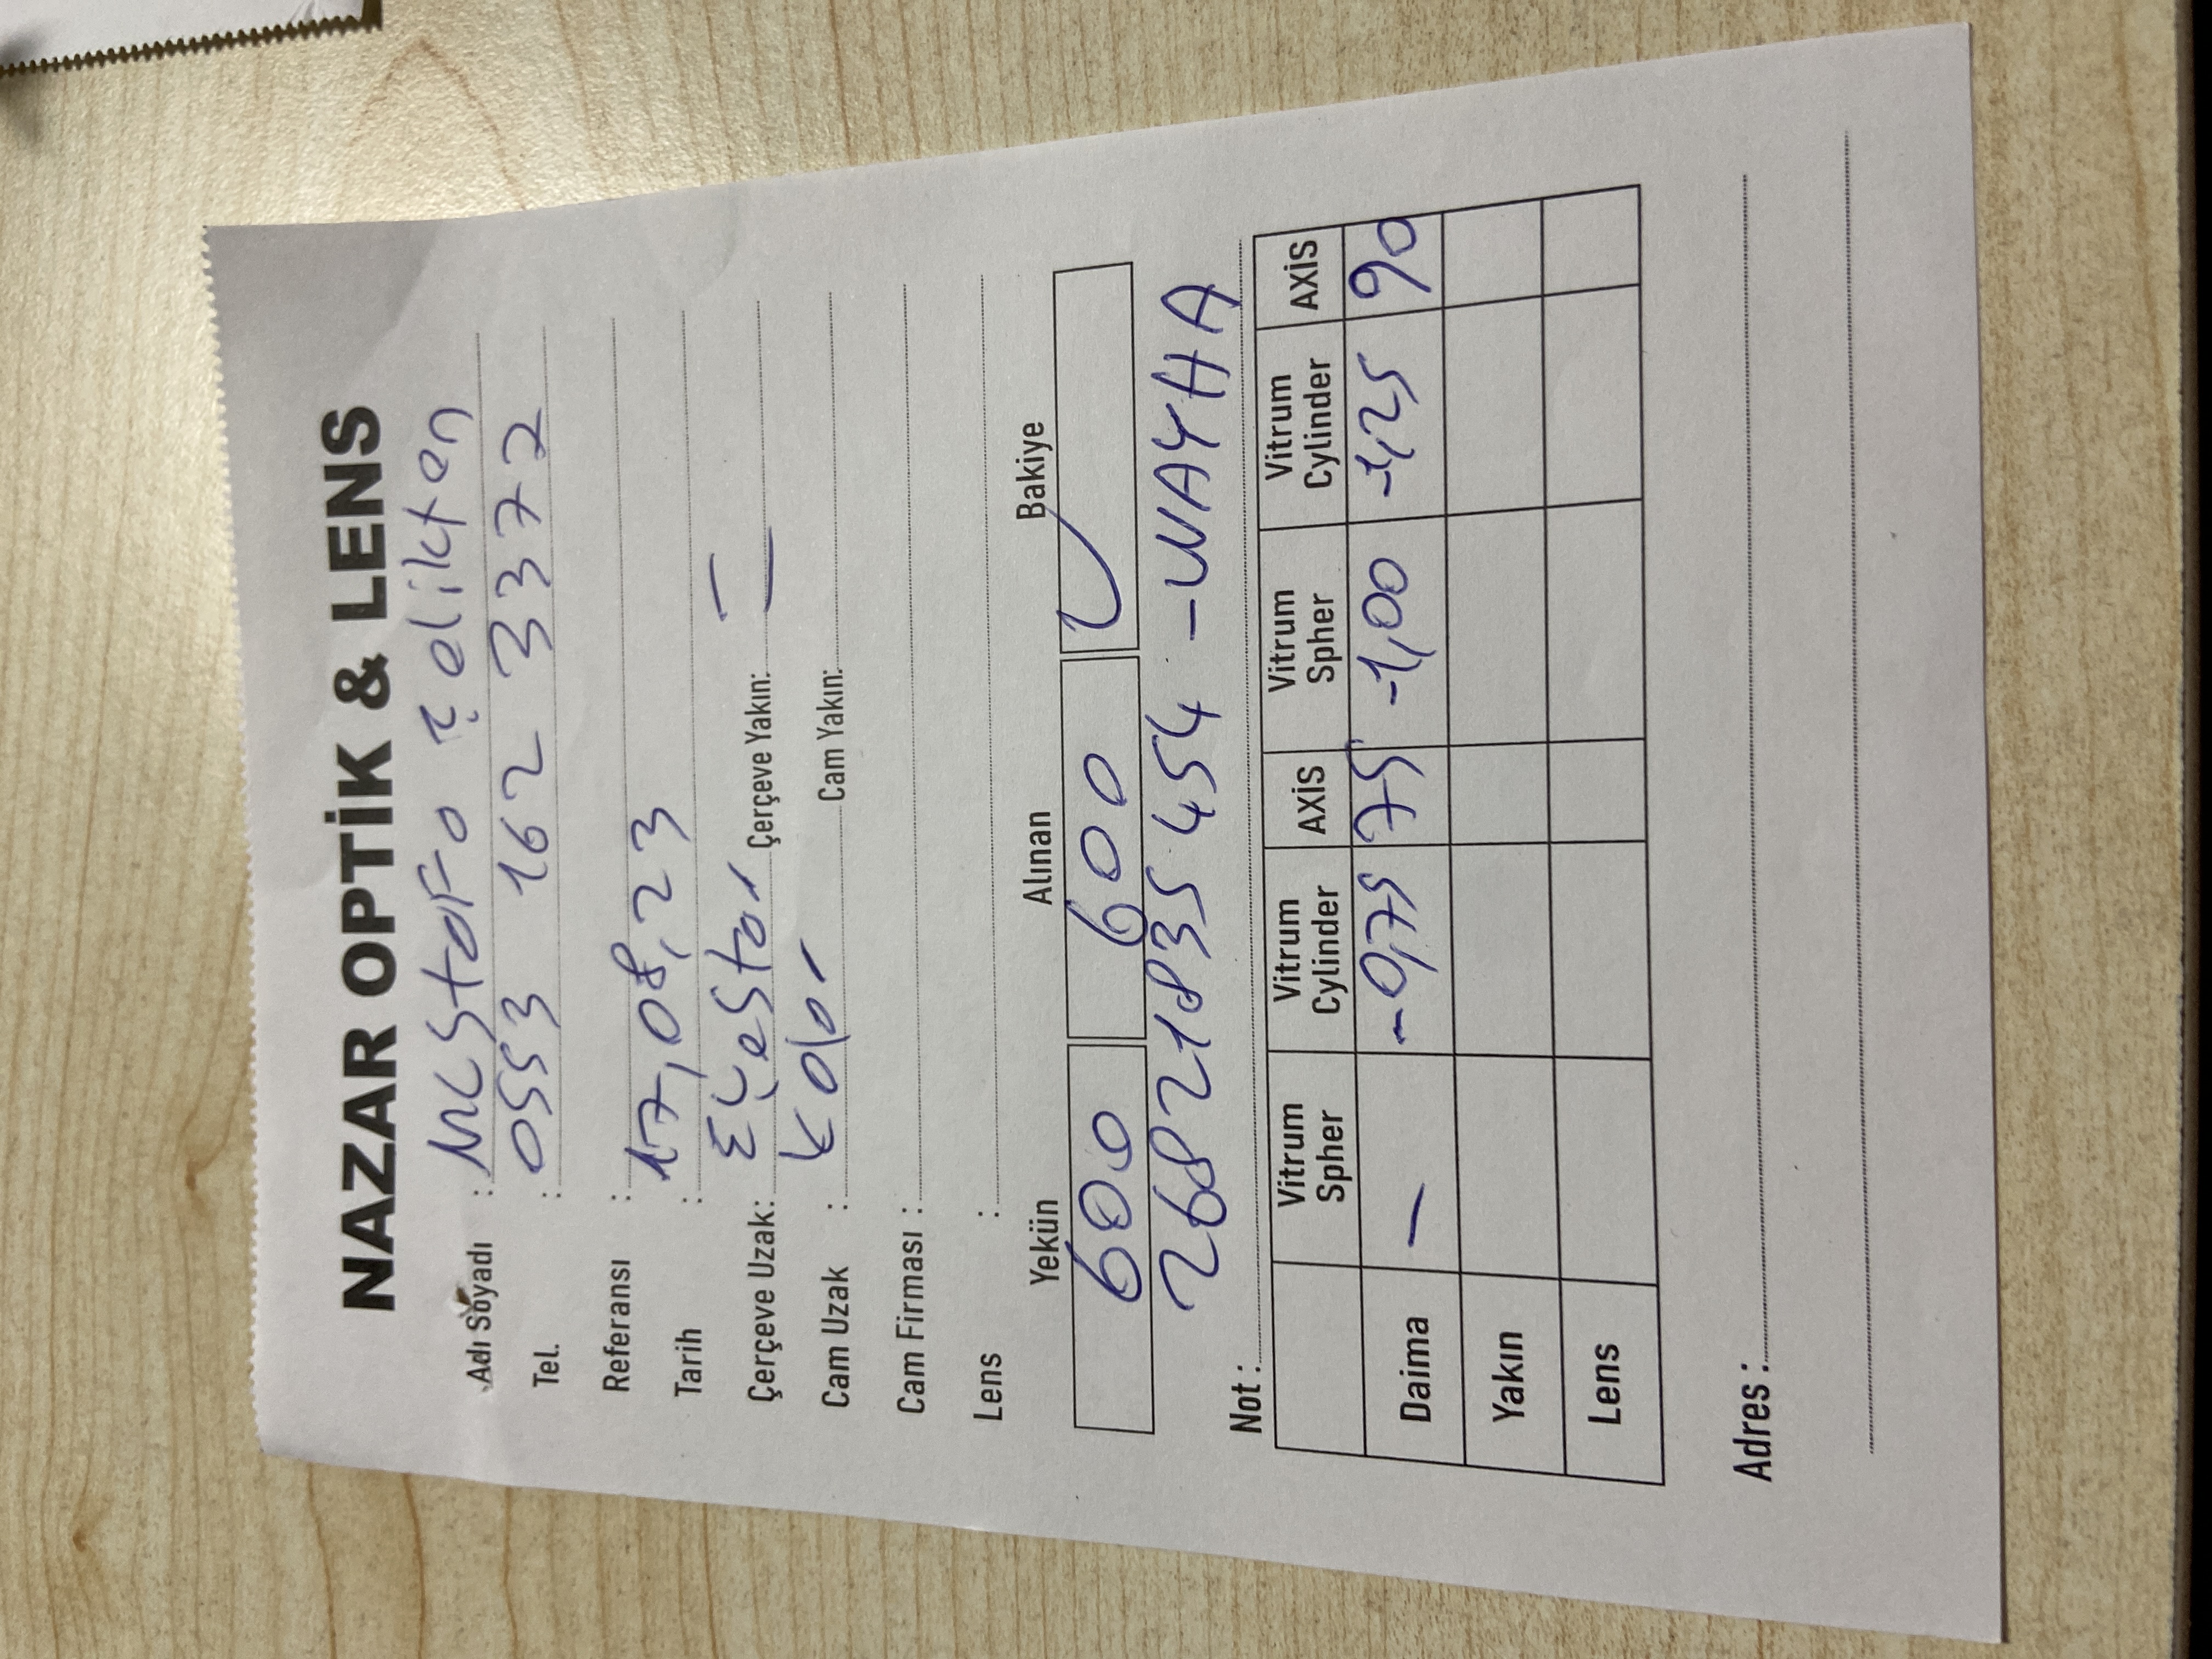 NAZAR OPTİK & LENS
Adı Soyadı : Mustafa Çelikten
Tel. : 0553 162 3372
Referansı :
Tarih : 17,08,23
Çerçeve Uzak: Çerçeve Yakın:
Cam Uzak : Kolor Cam Yakın:
Cam Firması :
Lens :
Yekün Alınan Bakiye
600 600
26821835454 -WAYHA
Not :
Vitrum Spher Vitrum Cylinder AXİS Vitrum Spher Vitrum Cylinder AXİS
Daima – -0,75 75 -1,00 -1,25 90
Yakın
Lens
Adres :